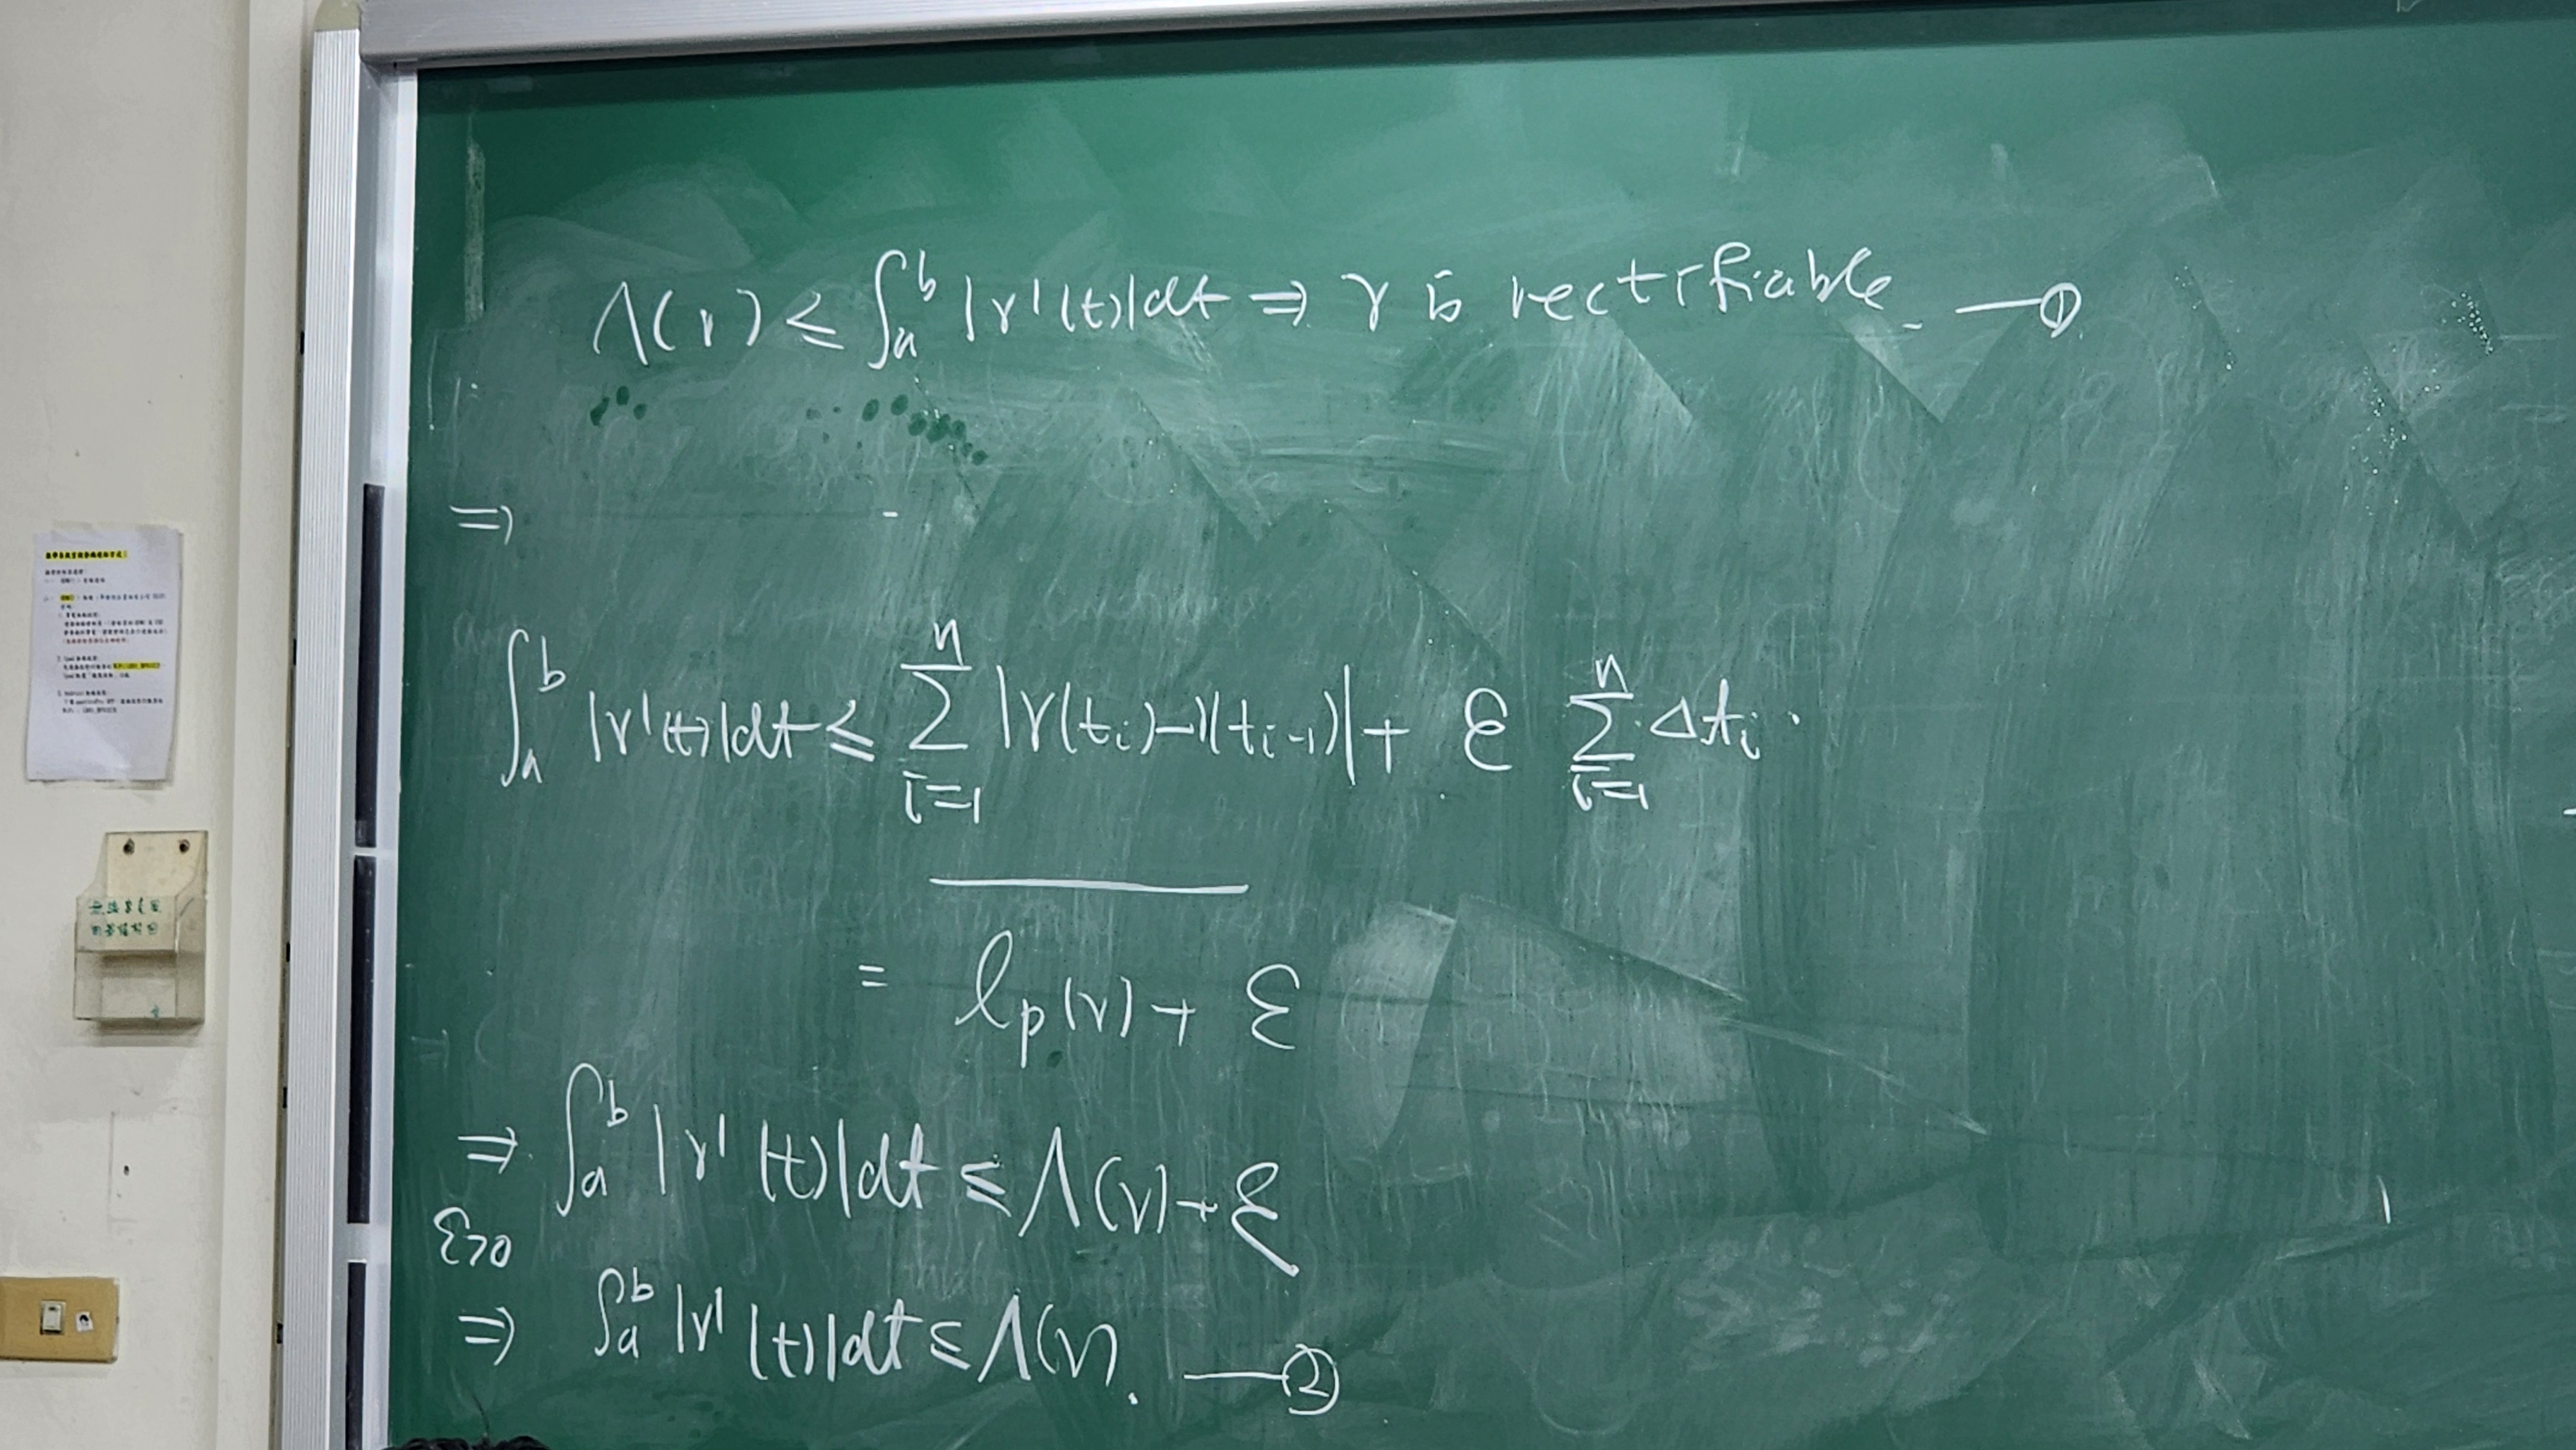 Λ(γ) ≤ ∫_a^b |γ'(t)|dt ⇒ γ is rectifiable. —①
⇒
∫_a^b |γ'(t)|dt ≤ ∑_{i=1}^n |γ(t_i)-γ(t_{i-1})| + ε ∑_{i=1}^n Δt_i.
= l_p(γ) + ε
⇒ ∫_a^b |γ'(t)|dt ≤ Λ(γ) + ε
ε>0
⇒ ∫_a^b |γ'(t)|dt ≤ Λ(γ). —②